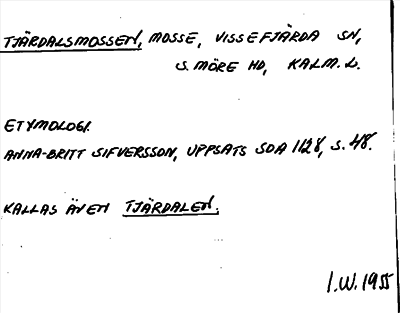 TJÄRDALSMOSSEN, MOSSE, VISSEFJÄRDA SN,
S. MÖRE HD, KALM. L.
ETYMOLOGI.
ANNA-BRITT SIFVERSSON, UPPSATS SOA 1128, S. 48.
KALLAS ÄVEN TJÄRDALEN.
I.W. 1955